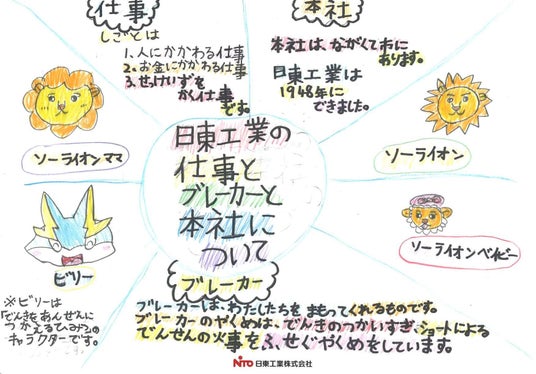 仕事
しごとは
1、人にかかわる仕事
2、お金にかかわる仕事
3、せっけいずを
かく仕事
です。
本社
本社は、ながくて市に
あります。
日東工業は
1948年に
できました。
ソーライオンママ
ソーライオン
日東工業の
仕事と
ブレーカーと
本社に
ついて
ビリー
ソーライオンベイビー
※ビリーは
「でんきをあんぜんに
つかえるひみつ」の
キャラクターです。
ブレーカー
ブレーカーは、わたしたちをまもってくれるものです。
ブレーカーのやくめは、でんきのつかいすぎ、ショートによる
でんせんの火事をふせぐやくめをしています。
NITO 日東工業株式会社